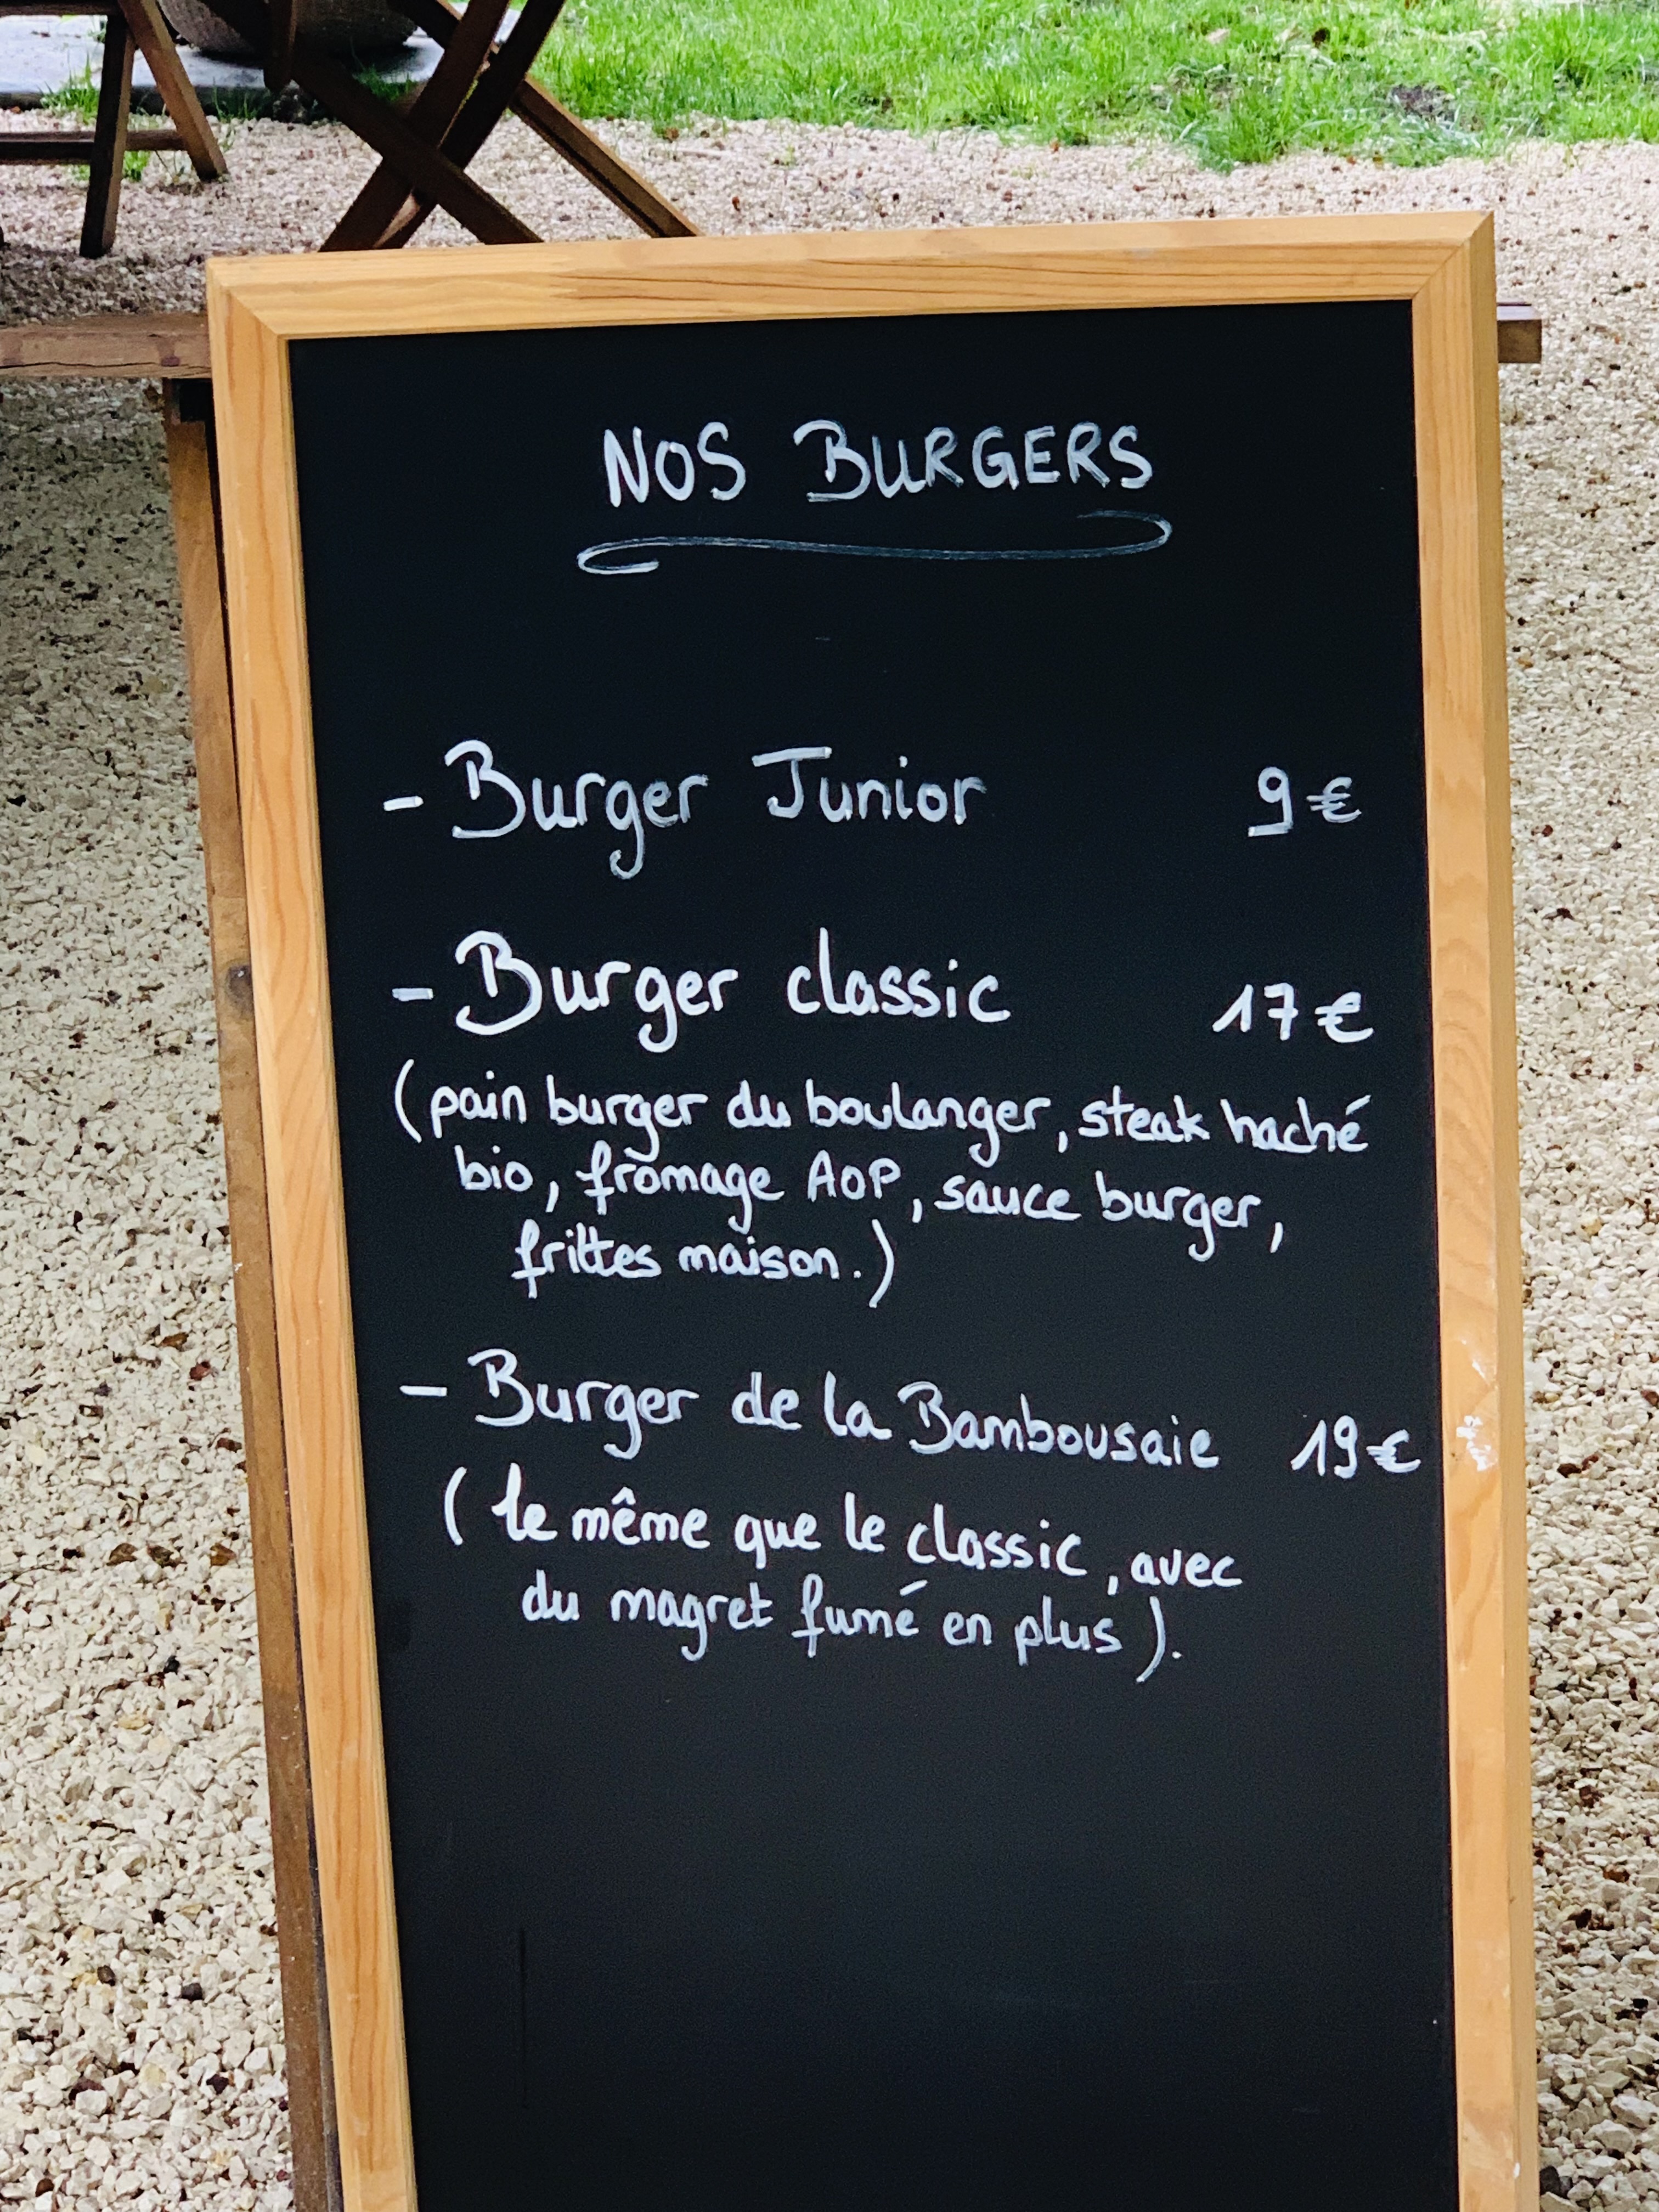 NOS BURGERS
- Burger Junior 9€
- Burger classic 17€
(pain burger du boulanger, steak haché
bio, fromage AOP, sauce burger,
frittes maison.)
- Burger de la Bambousaie 19€
(le même que le classic, avec
du magret fumé en plus).